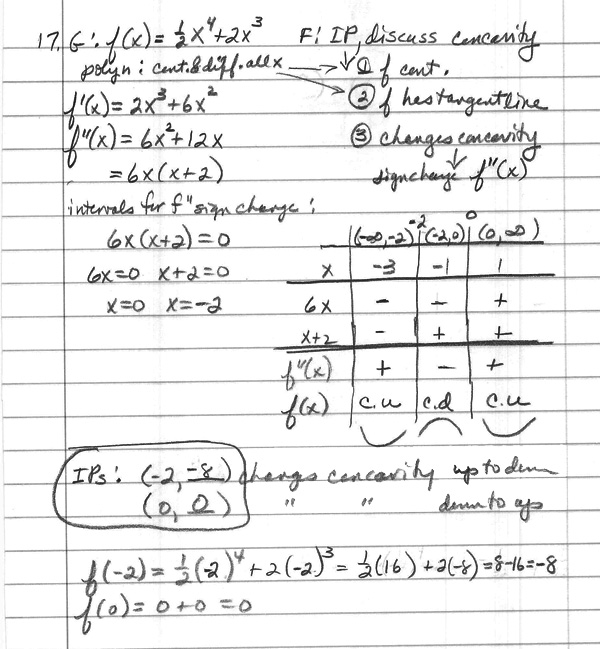 17. G: f(x) = ½x⁴+2x³ F: IP, discuss concavity
polyn: cont. & diff. all x → ① f cont.
f'(x) = 2x³+6x² ② f has tangent line
f''(x) = 6x²+12x ③ changes concavity
= 6x(x+2) sign change f''(x)
intervals for f'' sign change:
6x(x+2) = 0
6x=0 x+2=0
x=0 x=-2
(-∞,-2) -2 (-2,0) 0 (0,∞)
x -3 -1 1
6x - - +
x+2 - + +
f''(x) + - +
f(x) c.u c.d c.u
IPs: (-2, -8) changes concavity up to down
(0, 0) " " down to up
f(-2) = ½(-2)⁴ + 2(-2)³ = ½(16) + 2(-8) = 8-16 = -8
f(0) = 0+0 = 0